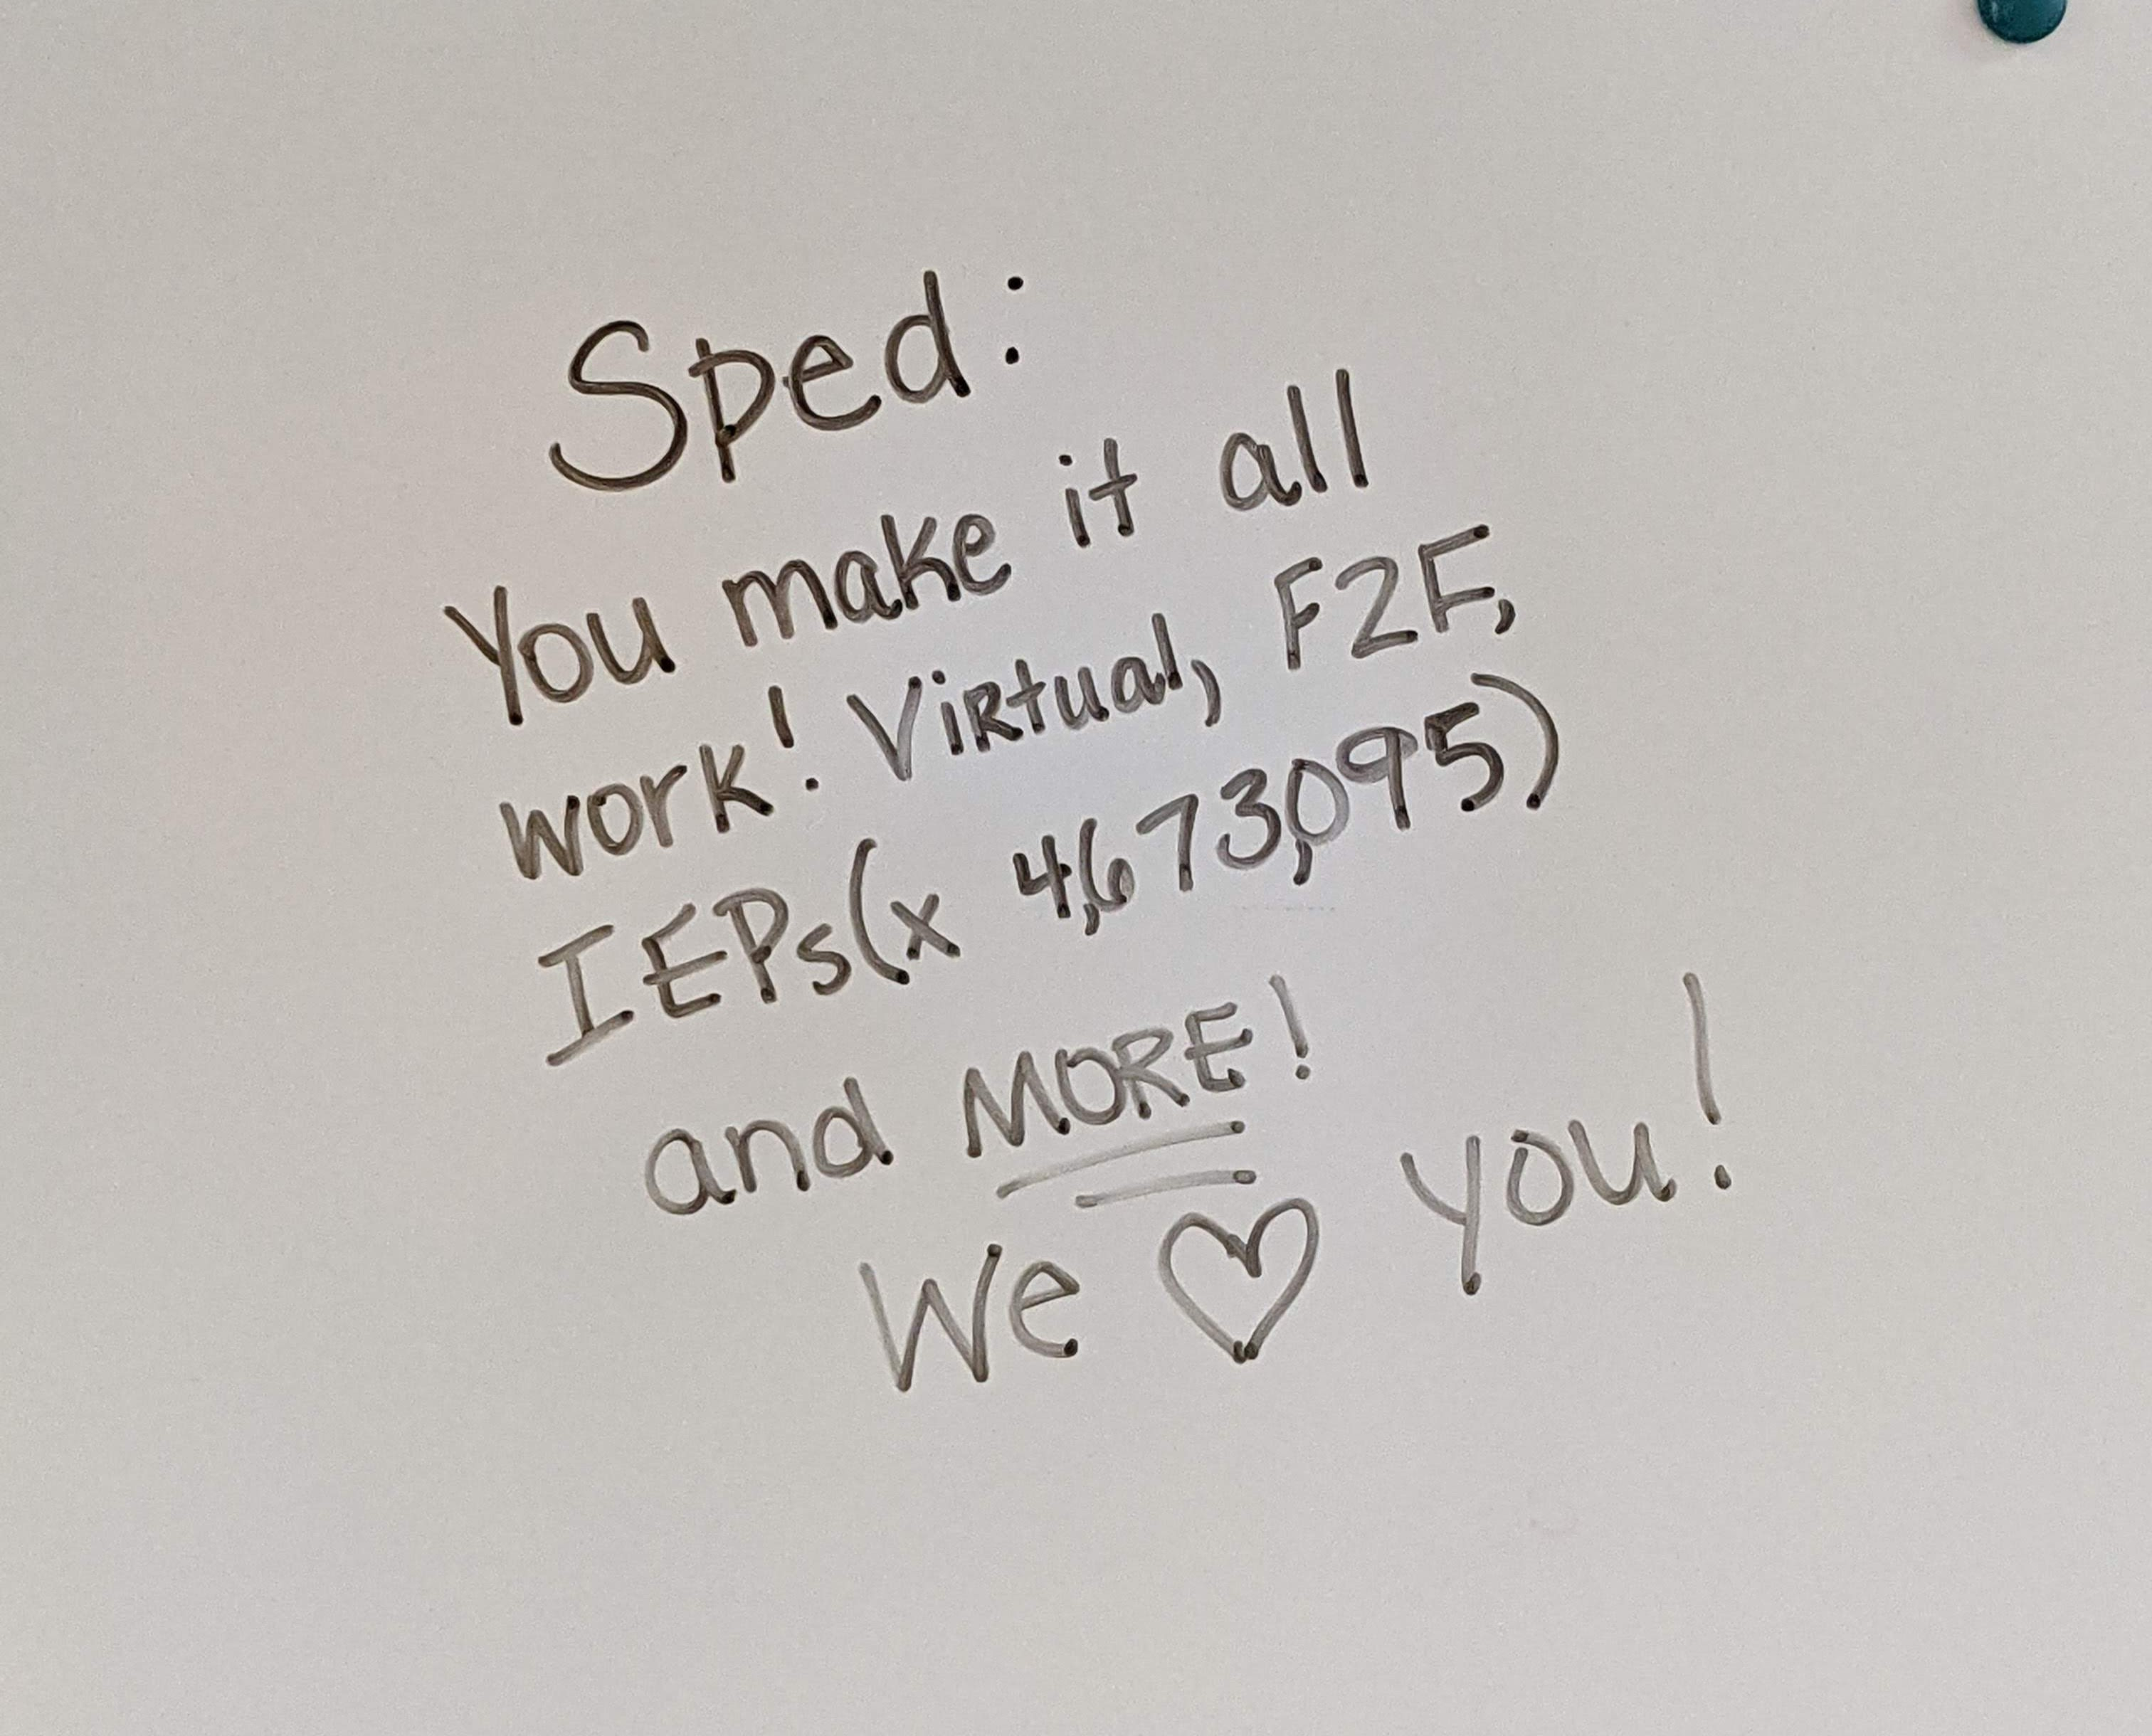 Sped:
You make it all
work! Virtual, F2F,
IEPs (x 4,673,095)
and MORE!
We ♡ you!